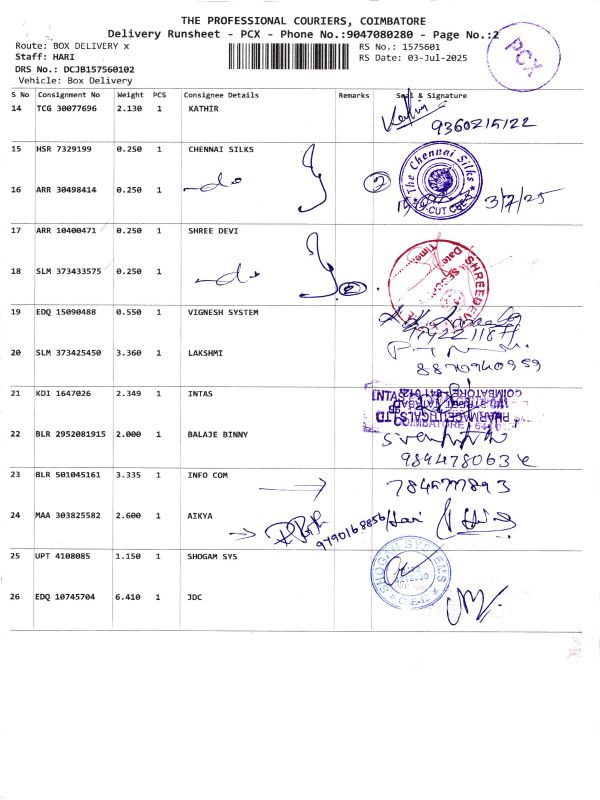 THE PROFESSIONAL COURIERS, COIMBATORE
Delivery Runsheet - PCX - Phone No.:9047080280 - Page No.:2
Route: BOX DELIVERY x
RS No.: 1575601
Staff: HARI
RS Date: 03-Jul-2025
DRS No.: DCJB157560102
Vehicle: Box Delivery
PCX
S No Consignment No Weight PCS Consignee Details Remarks Seal & Signature
14 TCG 30077696 2.130 1 KATHIR
9360215122
15 HSR 7329199 0.250 1 CHENNAI SILKS
The Chennai Silks
16 ARR 30498414 0.250 1 -do 2
3/7/25
17 ARR 10400471 0.250 1 SHREE DEVI
SHREEDEVI
Time:
Date:
18 SLM 373433575 0.250 1 -do
19 EDQ 15090488 0.550 1 VIGNESH SYSTEM
20 SLM 373425450 3.360 1 LAKSHMI
8870940959
21 KDI 1647026 2.349 1 INTAS
PHARMACEUTICALS LTD
COIMBATORE
22 BLR 2952081915 2.000 1 BALAJE BINNY
23 BLR 501045161 3.335 1 INFO COM
24 MAA 303825582 2.600 1 AIKYA
9790168856/Hari
25 UPT 4108085 1.150 1 SHOGAM SYS
SHOGAM SYSTEMS
26 EDQ 10745704 6.410 1 JDC